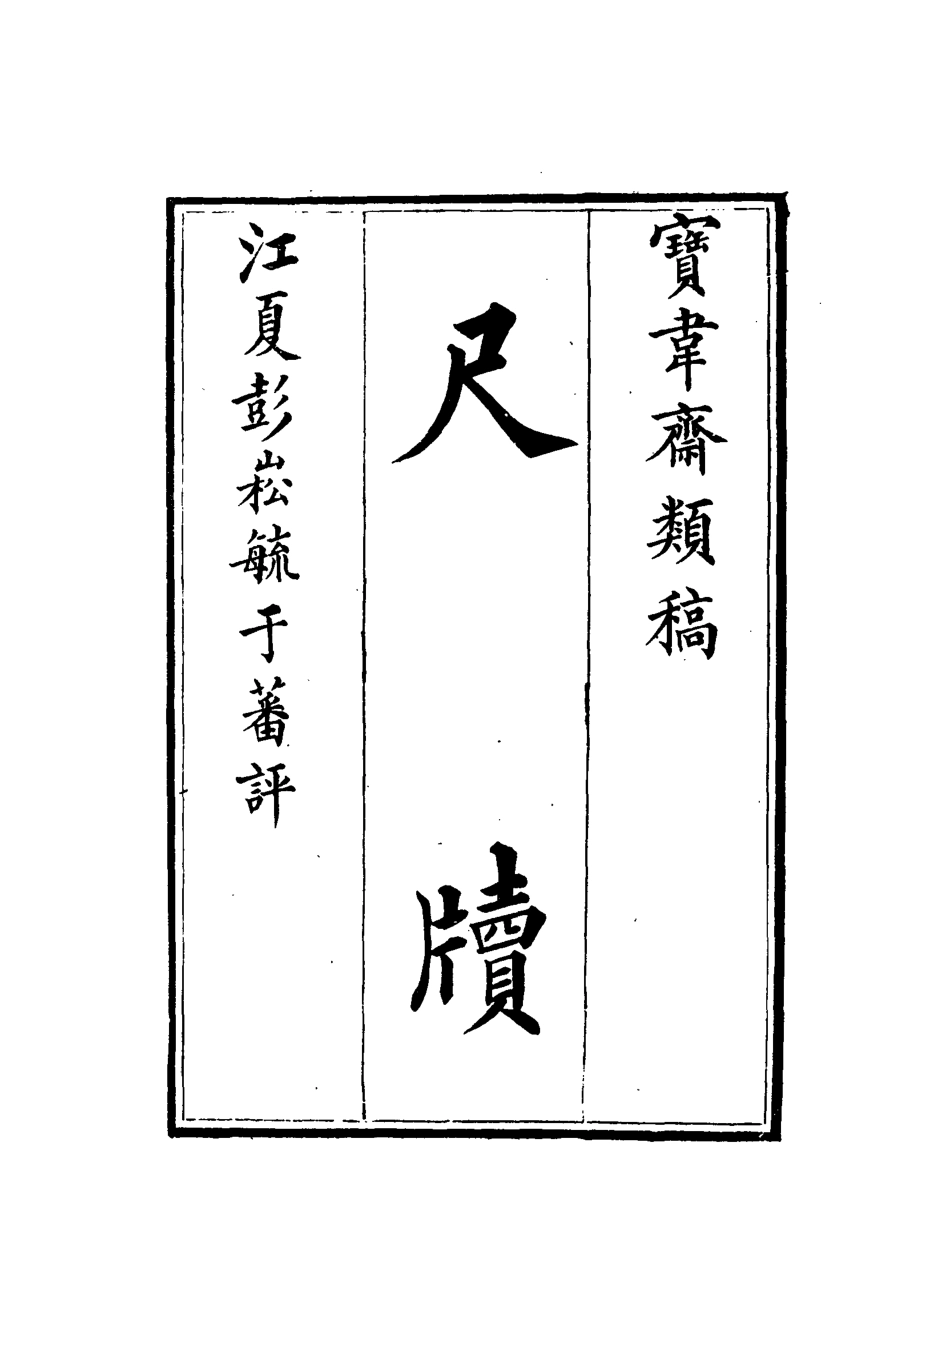 寶韋齋類稿
尺牘
江夏彭崧毓于蕃評